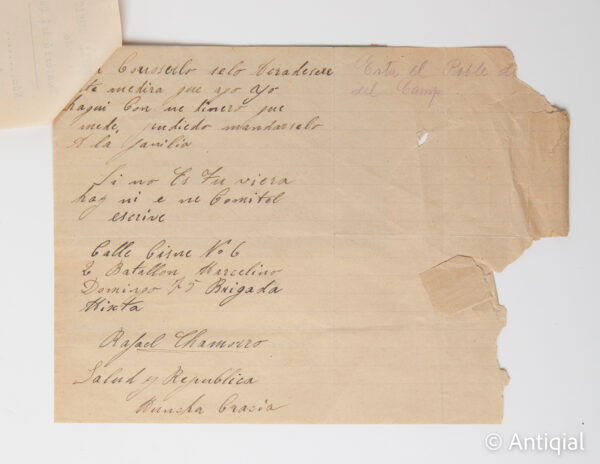 Conoserlo selo Deradesere
ta medira que ago yo
haqui Con ne dinero que
mede, pudiedo mandarselo
A la familia
Si no Es Tu viera
haq ni e ne Comitol
escrive
Calle Cisne Nº 6
2 Batallon Marcelino
Domingo 75 Brigada
Mixta
Rafael Chamorro
Salud y Republica
Muncha Crasia
Esta el Poble de
del Camp
© Antiqial